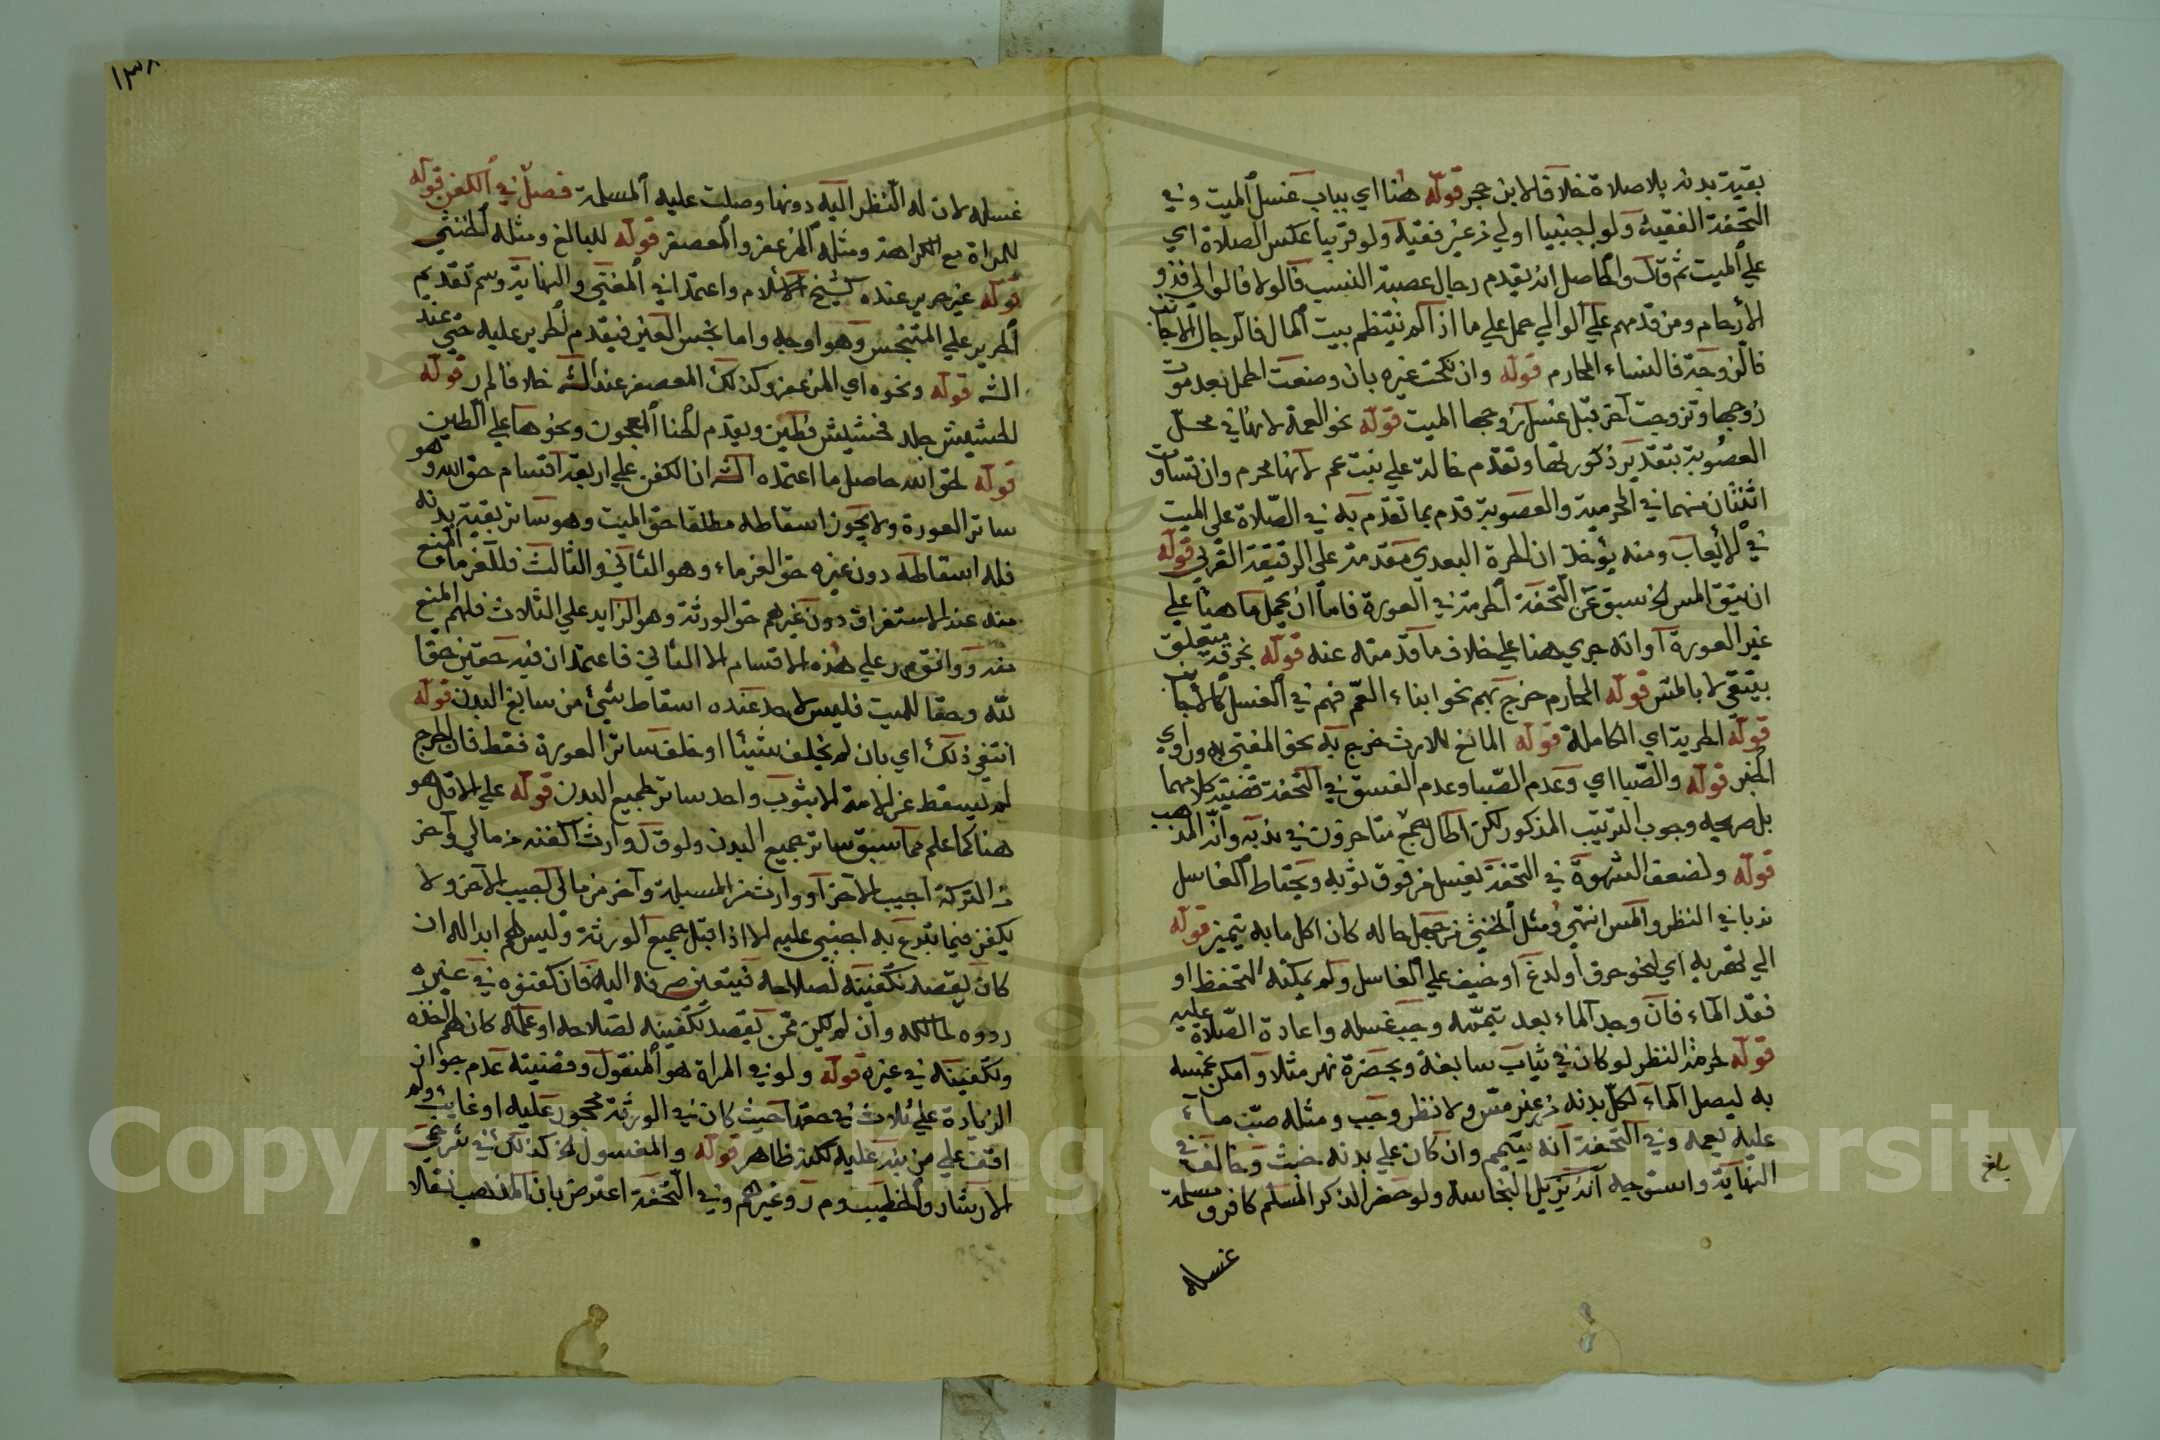 بقية بدنه بلا صلاة خلافا لابن حجر قوله هنا اي بباب غسل الميت وفي
التحفة الفقيه ولو اجنبيا اولي من غير فقيه ولو قريبا عكس الصلاة اي
علي الميت ثم قال والحاصل انه يقدم رجال عصبة النسب فالولا فالوالي فذو
الارحام ومن قدمهم علي الوالي حمل علي ما اذا لم ينتظم بيت المال فالرجال الاجانب
فالزوجة فالنساء المحارم قوله وان نكحت غيره بان وضعت الحمل بعد موت
زوجها وتزوجت اخر قبل غسل زوجها الميت قوله نحو العمة لانها في محل
العصوبة بتقدير ذكورتها وتقدم خالة علي بنت عم لانها محرم وان تساوت
اثنتان منهما في المحرمية والعصوبة قدم بما تقدم به في الصلاة علي الميت
في الايعاب ومنه يؤخذ ان الحرة البعدي مقدمة علي الرقيقة القربي قوله
ان يتق المس الخ سبق عن التحفة الحرمة في العورة فاما ان يحمل ما هنا علي
غير العورة او انه جري هنا علي خلاف ما قدمته عنه قوله بخرقة يتعلق
بيتقي لا بالمس قوله المحارم خرج بهم نحو ابناء العم فهم في الغسل كالاجانب
قوله الحرية اي الكاملة قوله المانع للارث خرج به نحو المفتي به وراوي
الخبر قوله والصبا اي وعدم الصبا وعدم الفسق في التحفة قضية كلامهما
بل صريحه وجوب الترتيب المذكور لكن اطال جمع متاخرون في ندبه وانه المذهب
قوله ولضعف الشهوة في التحفة يغسل من فوق ثوبه ويحتاط الغاسل
ندبا في النظر والمس انتهي ومثل الخنثي من جهل حاله كان اكل ما به يتميز قوله
الي تهريه اي لنحو حرق او لدغ او خيف علي الغاسل ولم يمكنه التحفظ او
فقد الماء فان وجد الماء بعد تيممه وجب غسله واعادة الصلاة عليه
قوله لحرمة النظر لو كان في ثياب سابغة وبحضرة نهر مثلا وامكن غمسه
به ليصل الماء لكل بدنه من غير مس ولا نظر وجب ومثله صب ماء
عليه يعمه وفي التحفة انه ييمم وان كان علي بدنه خبث وخالف في
النهاية واستوجه انه يزيل النجاسة ولو حضر الذكر المسلم كافر ومسلمة
غسله
بلغ
١٣٨
غسله لان له النظر اليه دونها وصلت عليه المسلمة فصل في الكفن قوله
للمراة مع الكراهة ومثله المزعفر والمعصفر قوله للبالغ ومثله الخنثي
قوله غير حرير عنده كشيخ الاسلام واعتمدا في المغني والنهاية و سم تقديم
الحرير علي المتنجس وهو اوجه واما نجس العين فيقدم الحرير عليه حتي عند
الشه قوله ونحوه اي المزعفر وكذلك المعصفر عند الشه خلافا لم ر قوله
لحشيش جلد فحشيش فطين ويقدم الحنا المعجون ونحوها علي الطين
قوله لحق الله حاصل ما اعتمده الشه ان الكفن علي اربعة اقسام حق الله وهو
ساتر العورة ولا يجوز اسقاطه مطلقا حق الميت وهو ساتر بقية بدنه
فله اسقاطه دون غيره حق الغرماء وهو الثاني والثالث فللغرما المنع
منه عند الاستغراق دون غيرهم حق الورثة وهو الزايد علي الثلاث فلهم المنع
منه ووافق م ر علي هذه الاقسام الا الثاني فاعتمد ان فيه حقين حقا
لله وحقا للميت فليس لاحد عنده اسقاط شئ من سابغ البدن قوله
انتفي ذلك اي بان لم يخلف شيئا او خلف ساتر العورة فقط فان الحرج
لم يسقط عن الامة الا بثوب واحد ساتر لجميع البدن قوله علي الاقل هو
هنا كما علم مما سبق ساتر جميع البدن ولو قال وارث اكفنه من مالي واخر
من التركة اجيب الاخر او وارث من المسبلة واخر من مالي اجيب الاخر ولا
يكفن فيما تبرع به اجنبي عليه الا اذا قبل جميع الورثة وليس لهم ابداله ان
كان يقصد تكفينه لصلاحه فيتعين صرفه اليه فان كفنوه في غيره
ردوه لمالكه وان لم يكن ممن يقصد تكفينه لصلاحه او علمه كان لهم اخذه
وتكفينه في غيره قوله ولو في المراة هو المنقول وقضيته عدم جواز
الزيادة علي ثلاث في حقها حيث كان في الورثة محجور عليه او غايب ولم
اقف علي من نبه عليه لكنه ظاهر قوله والمغسول الخ كذلك في شرحي
الارشاد والخطيب و م ر وغيرهم وفي التحفة اعترض بان المذهب نقلا